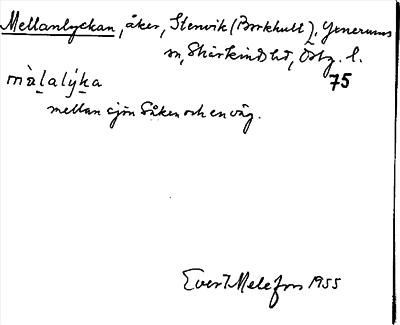 Mellanlyckan, åker, Stenvik (Borkhult), Yxnerums
sn, Skärkinds hd, Östg. l.
75
mellan sjön Såken och en väg.
Evert Melefors 1955